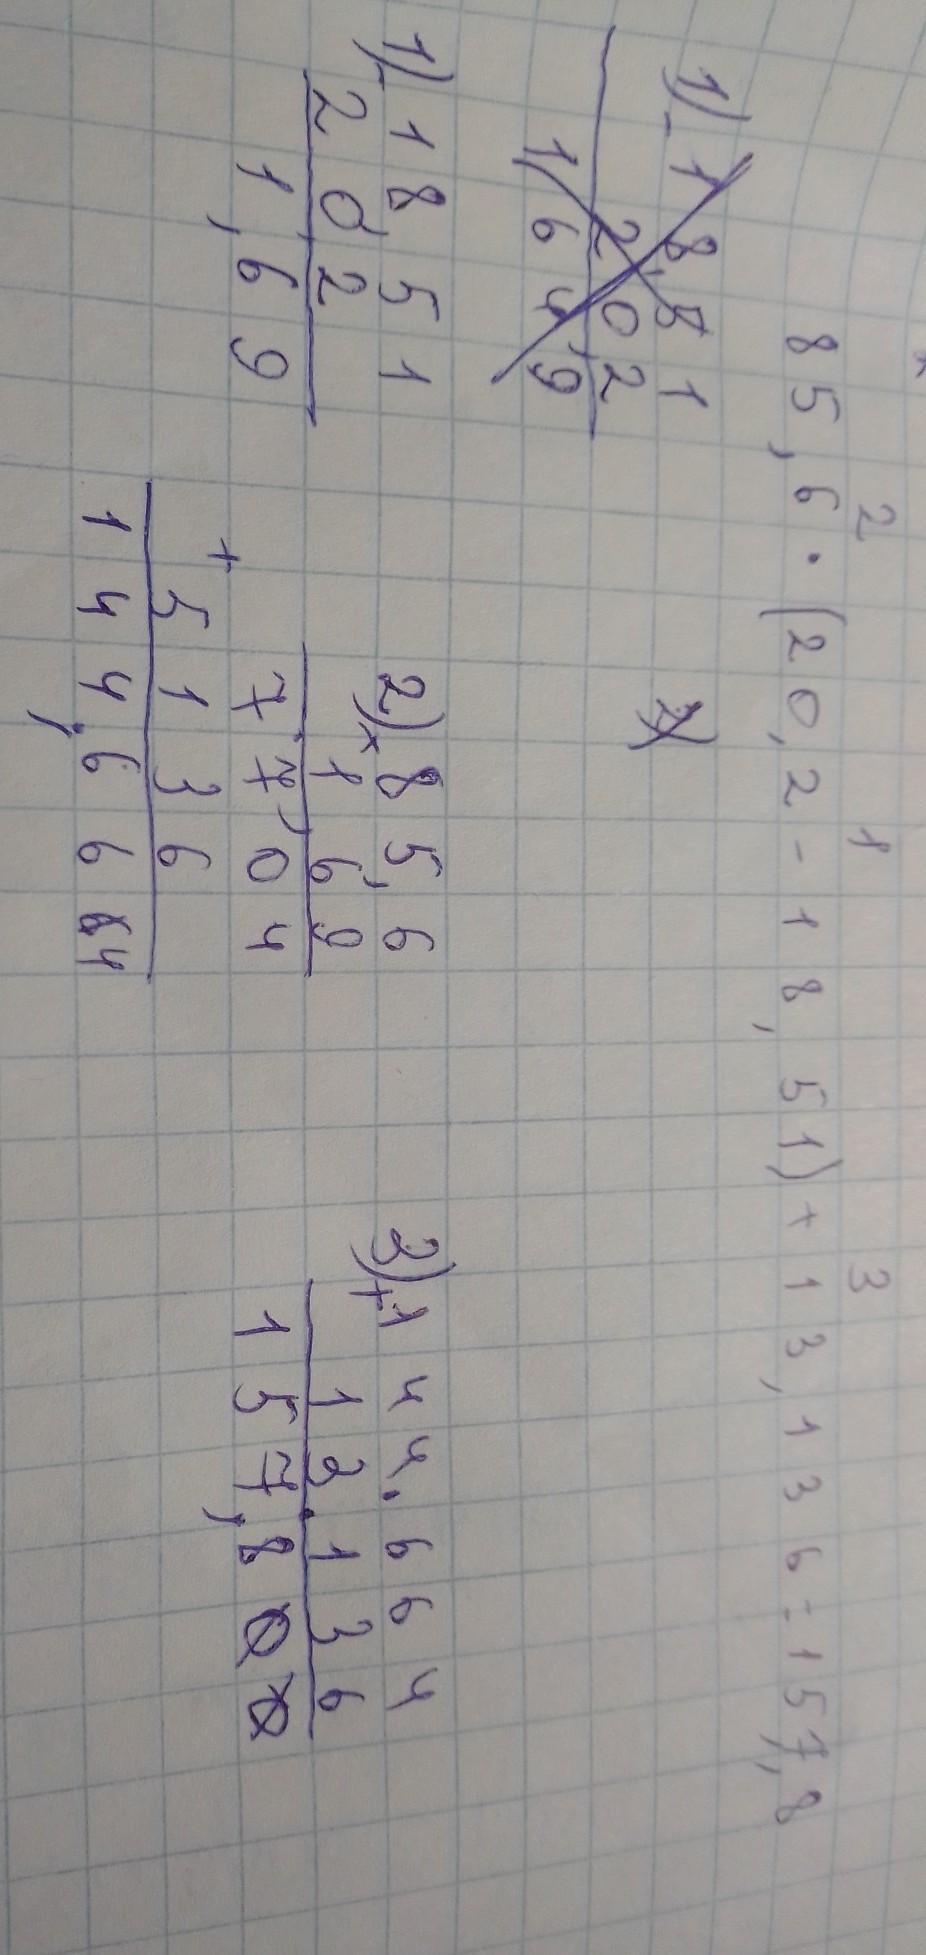 2 1 3
85,6·(20,2-18,51)+13,136=157,8
1) - 18,51
20,2
1,649
2)
1) - 18,51
20,2
1,69
2) × 85,6
1,69
7704
+ 5136
144,664
3) + 144.664
13.136
157,800